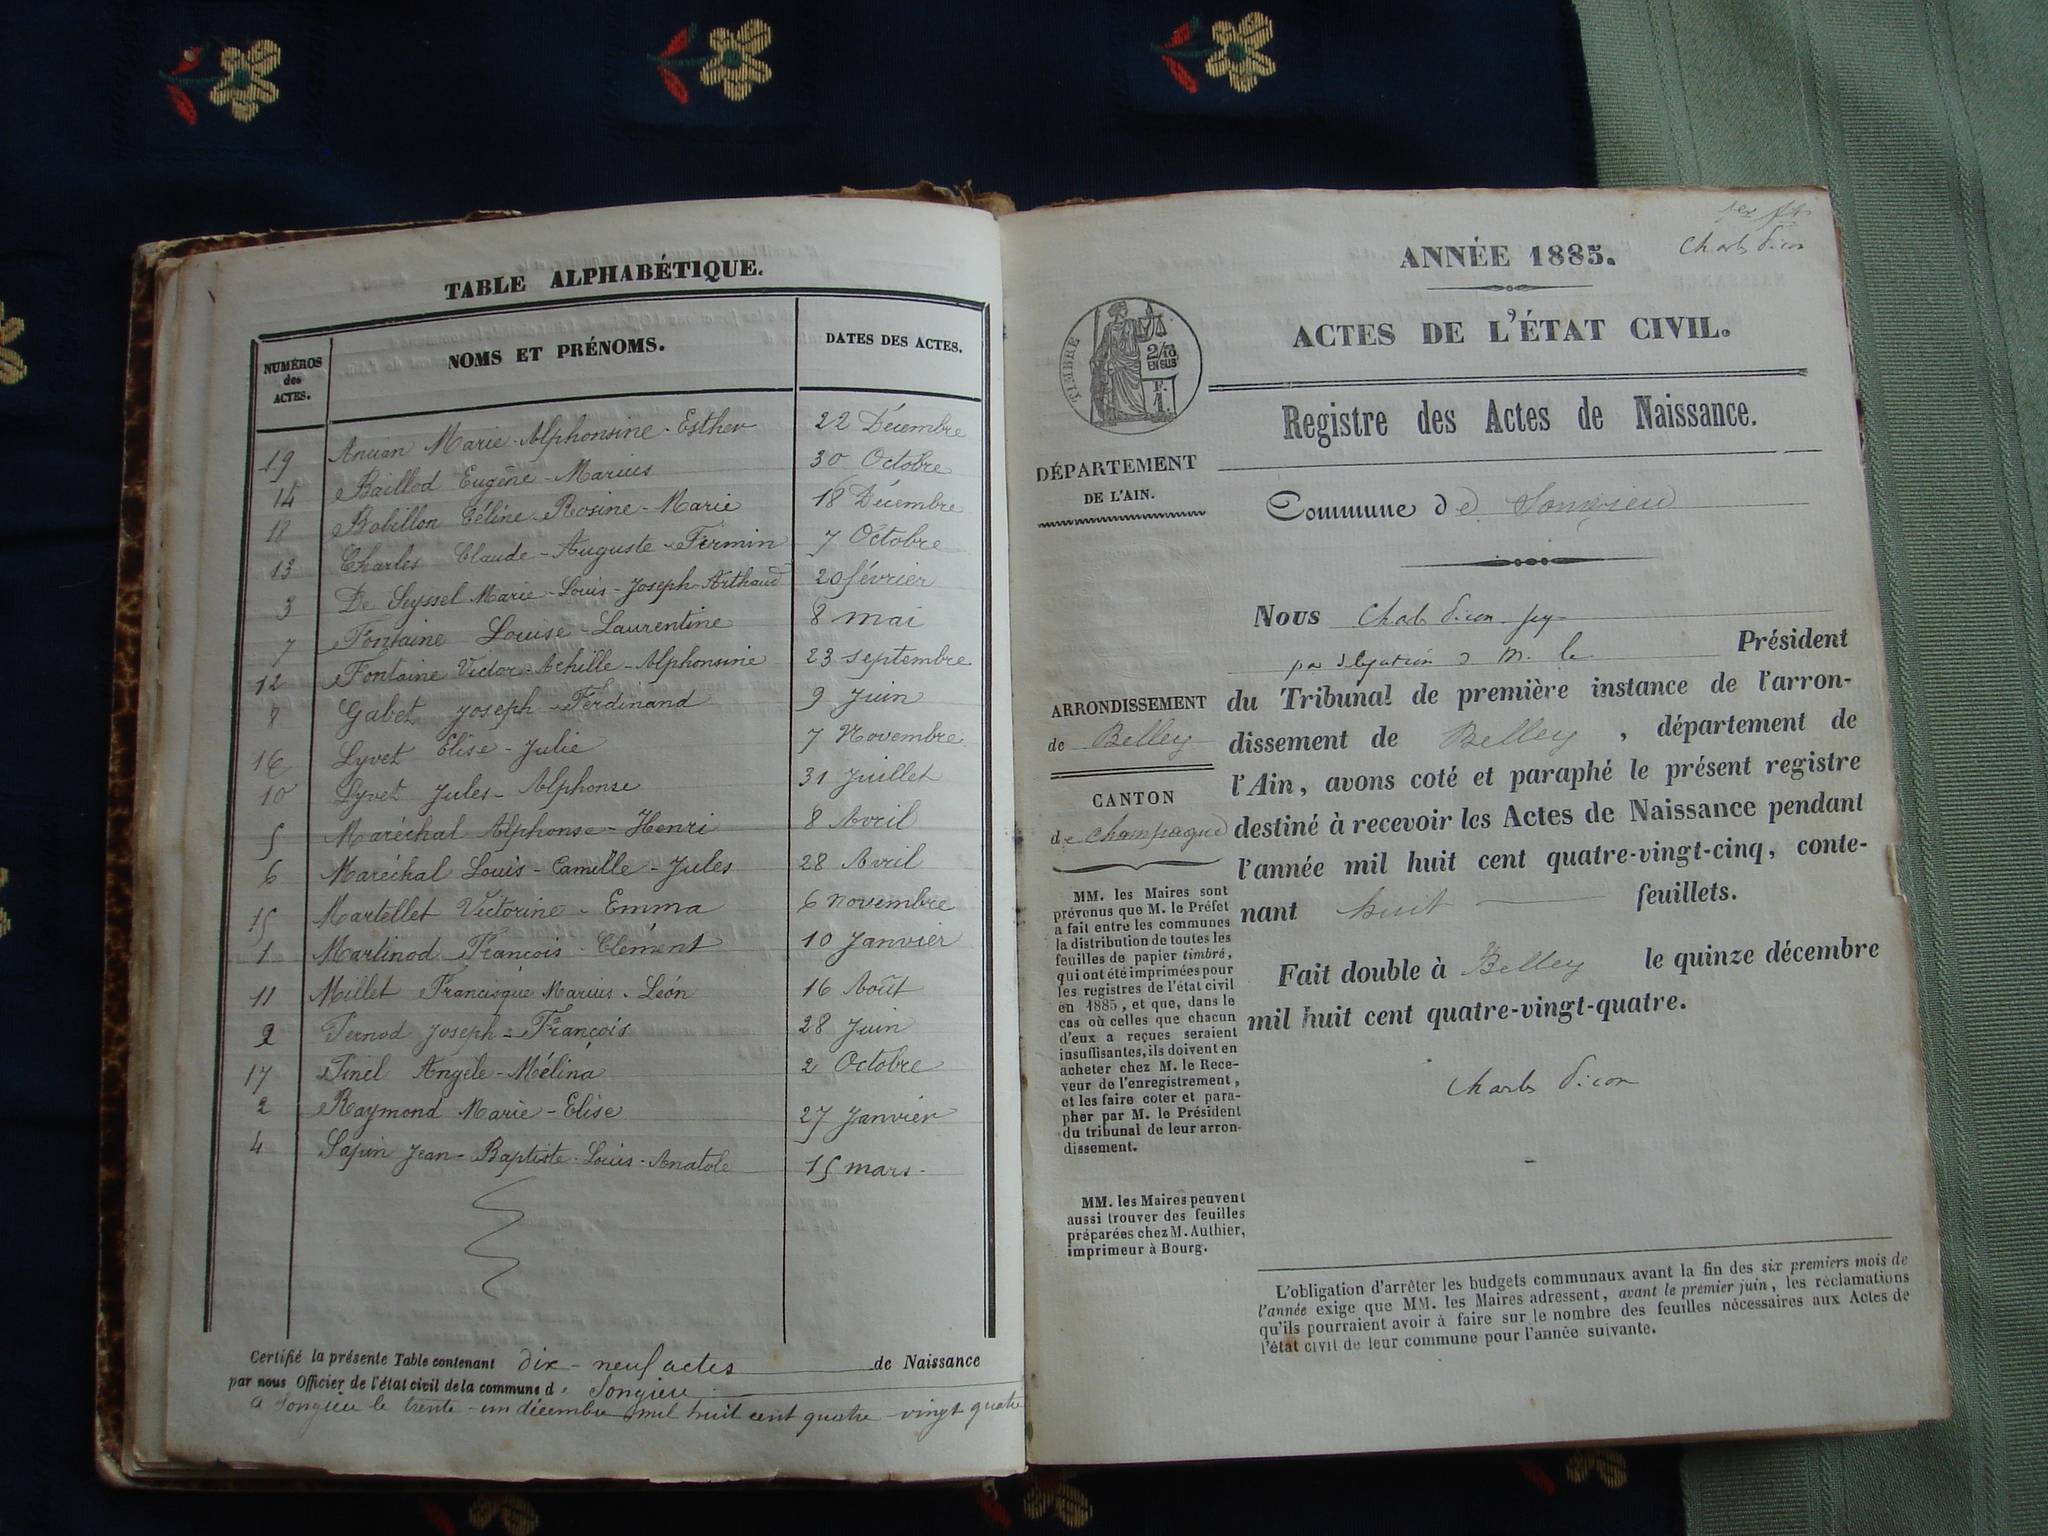 TABLE ALPHABÉTIQUE.
NUMÉROS des ACTES. NOMS ET PRÉNOMS. DATES DES ACTES.
19 Marie-Alphonsine-Esther 22 Décembre
14 Baillod Eugène-Marius 30 Octobre
18 Bobillon Céline-Rosine-Marie 18 Décembre
13 Charles Claude-Auguste-Firmin 7 Octobre
3 De Seyssel Marie-Louis-Joseph-Arthaud 20 février
7 Fontaine Louise-Laurentine 8 mai
12 Fontaine Victor-Achille-Alphonsine 23 septembre
8 Gabet Joseph-Ferdinand 9 Juin
16 Lyvet Elise-Julie 7 Novembre
10 Lyvet Jules-Alphonse 31 Juillet
5 Maréchal Alphonse-Henri 8 Avril
6 Maréchal Louis-Camille-Jules 28 Avril
15 Martellet Victorine-Emma 6 novembre
1 Martinod François-Clément 10 Janvier
11 Millet Francisque Marius-Léon 16 Août
9 Pernod Joseph-François 28 Juin
17 Pinel Angèle-Mélina 2 Octobre
2 Raymond Marie-Elise 27 Janvier
4 Sapin Jean-Baptiste-Louis-Anatole 15 mars
Certifié la présente Table contenant dix-neuf actes de Naissance
par nous Officier de l'état civil de la commune de Songieu
a Songieu le trente-un décembre mil huit cent quatre-vingt quatre
ANNÉE 1885.
ACTES DE L'ÉTAT CIVIL.
TIMBRE
2/10
EN SUS
Registre des Actes de Naissance.
DÉPARTEMENT
DE L'AIN.
Commune de Songieu
ARRONDISSEMENT
de Belley
CANTON
de Champagne
MM. les Maires sont
prévenus que M. le Préfet
a fait entre les communes
la distribution de toutes les
feuilles de papier timbré,
qui ont été imprimées pour
les registres de l'état civil
en 1885, et que, dans le
cas où celles que chacun
d'eux a reçues seraient
insuffisantes, ils doivent en
acheter chez M. le Rece-
veur de l'enregistrement,
et les faire coter et para-
pher par M. le Président
du tribunal de leur arron-
dissement.
MM. les Maires peuvent
aussi trouver des feuilles
préparées chez M. Authier,
imprimeur à Bourg.
Nous
par délégation de M. le Président
du Tribunal de première instance de l'arron-
dissement de Belley, département de
l'Ain, avons coté et paraphé le présent registre
destiné à recevoir les Actes de Naissance pendant
l'année mil huit cent quatre-vingt-cinq, conte-
nant huit feuillets.
Fait double à Belley le quinze décembre
mil huit cent quatre-vingt-quatre.
L'obligation d'arrêter les budgets communaux avant la fin des six premiers mois de
l'année exige que MM. les Maires adressent, avant le premier juin, les réclamations
qu'ils pourraient avoir à faire sur le nombre des feuilles nécessaires aux Actes de
l'état civil de leur commune pour l'année suivante.